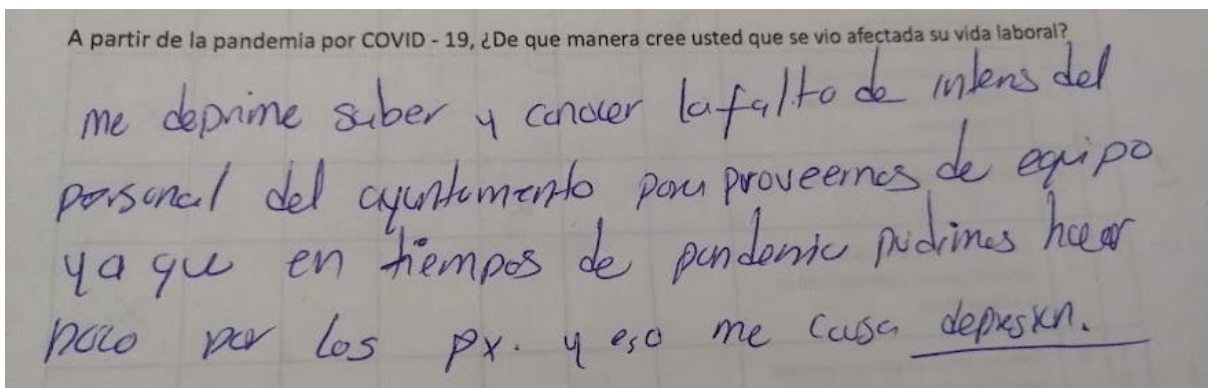 A partir de la pandemia por COVID - 19, ¿De que manera cree usted que se vio afectada su vida laboral?
me deprime saber y conocer la falta de interes del
personal del ayuntamiento para proveernos de equipo
ya que en tiempos de pandemia pudimos hacer
poco por los px. y eso me causa depresion.